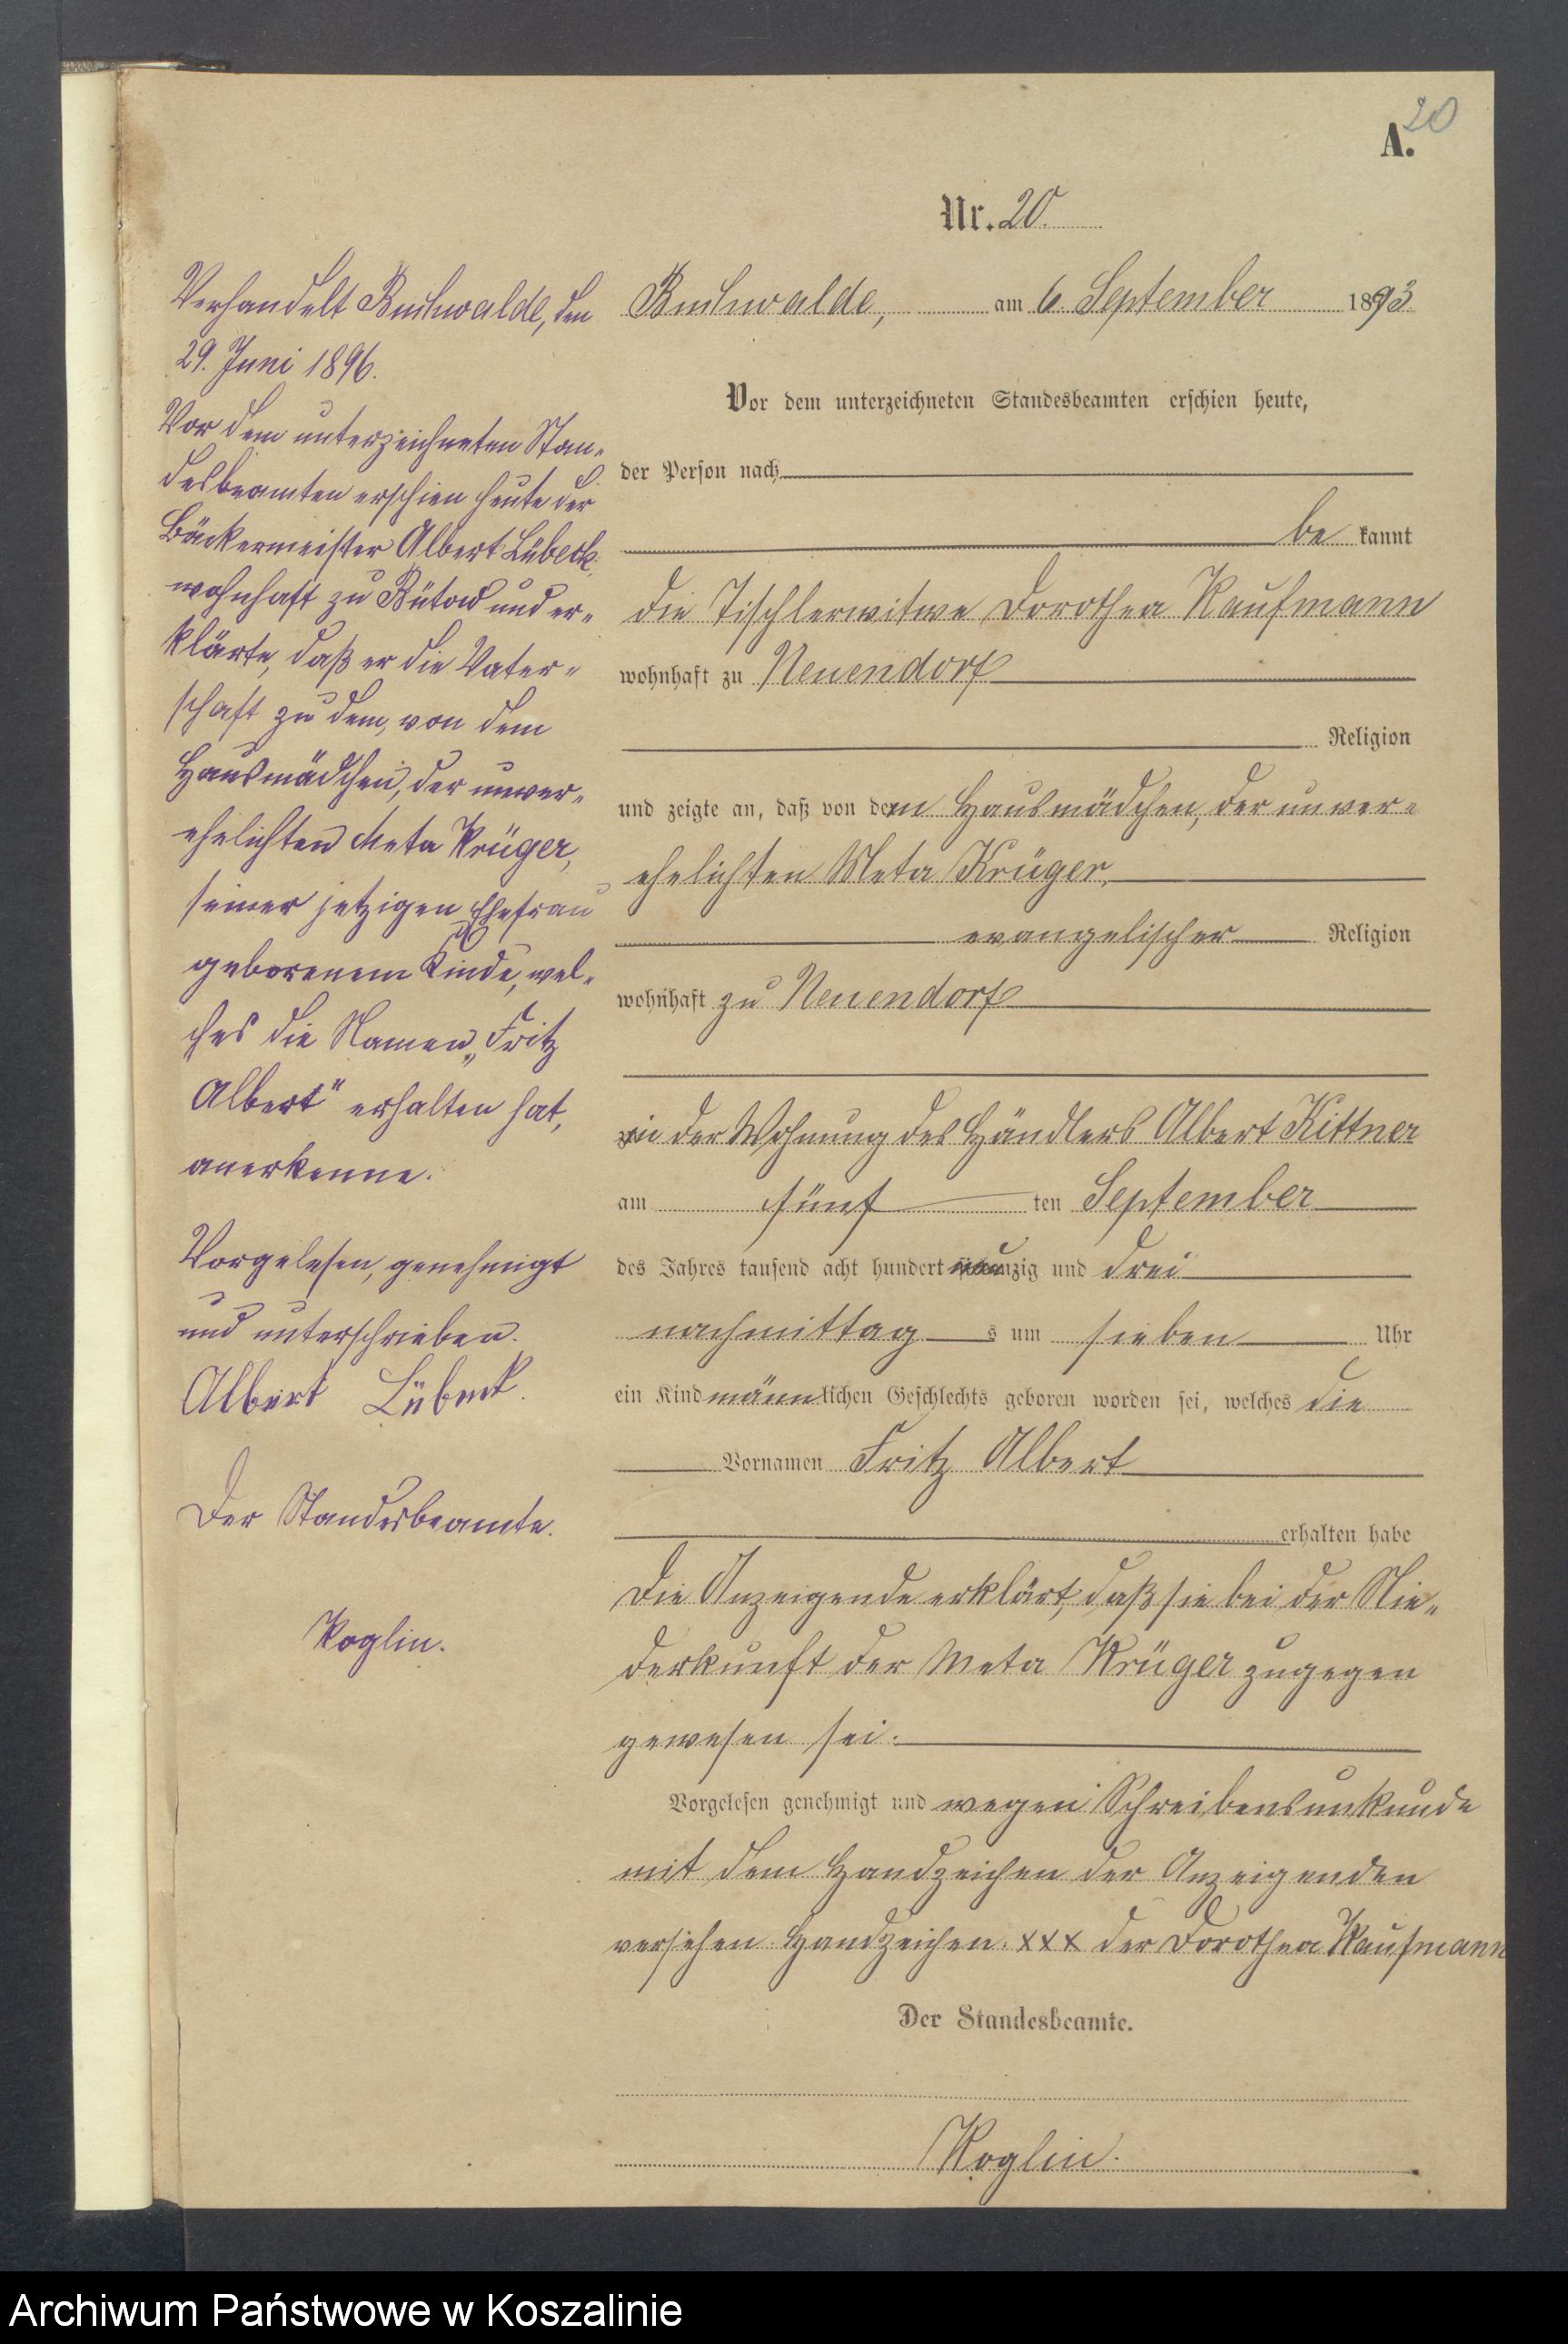 20
A.
Nr. 20.
Verhandelt Buchwalde, den
29. Juni 1896.
Vor dem unterzeichneten Stan-
desbeamten erschien heute der
Bäckermeister Albert Lübeck,
wohnhaft zu Bütow und er-
klärte, daß er die Vater-
schaft zu dem, von dem
Hausmädchen, der unver-
ehelichten Meta Krüger,
seiner jetzigen Ehefrau
geborenem Kinde, wel-
ches die Namen „Fritz
Albert" erhalten hat,
anerkenne.
Vorgelesen, genehmigt
und unterschrieben.
Albert Lübeck.
Der Standesbeamte.
Koglin.
Buchwalde, am 6. September 1893.
Vor dem unterzeichneten Standesbeamten erschien heute,
der Person nach
be kannt
die Tischlerwitwe Dorothea Kaufmann
wohnhaft zu Neuendorf
Religion
und zeigte an, daß von dem Hausmädchen, der unver-
ehelichten Meta Krüger,
evangelischer Religion
wohnhaft zu Neuendorf
in der Wohnung des Händlers Albert Kittner
am fünf ten September
des Jahres tausend acht hundert neunzig und drei
nachmittag s um sieben Uhr
ein Kind männlichen Geschlechts geboren worden sei, welches die
Vornamen Fritz Albert
erhalten habe
Die Anzeigende erklärt, daß sie bei der Nie-
derkunft der Meta Krüger zugegen
gewesen sei.
Vorgelesen genehmigt und wegen Schreibensunkunde
mit dem Handzeichen der Anzeigenden
versehen. Handzeichen. xxx der Dorothea Kaufmann
Der Standesbeamte.
Koglin.
Archiwum Państwowe w Koszalinie